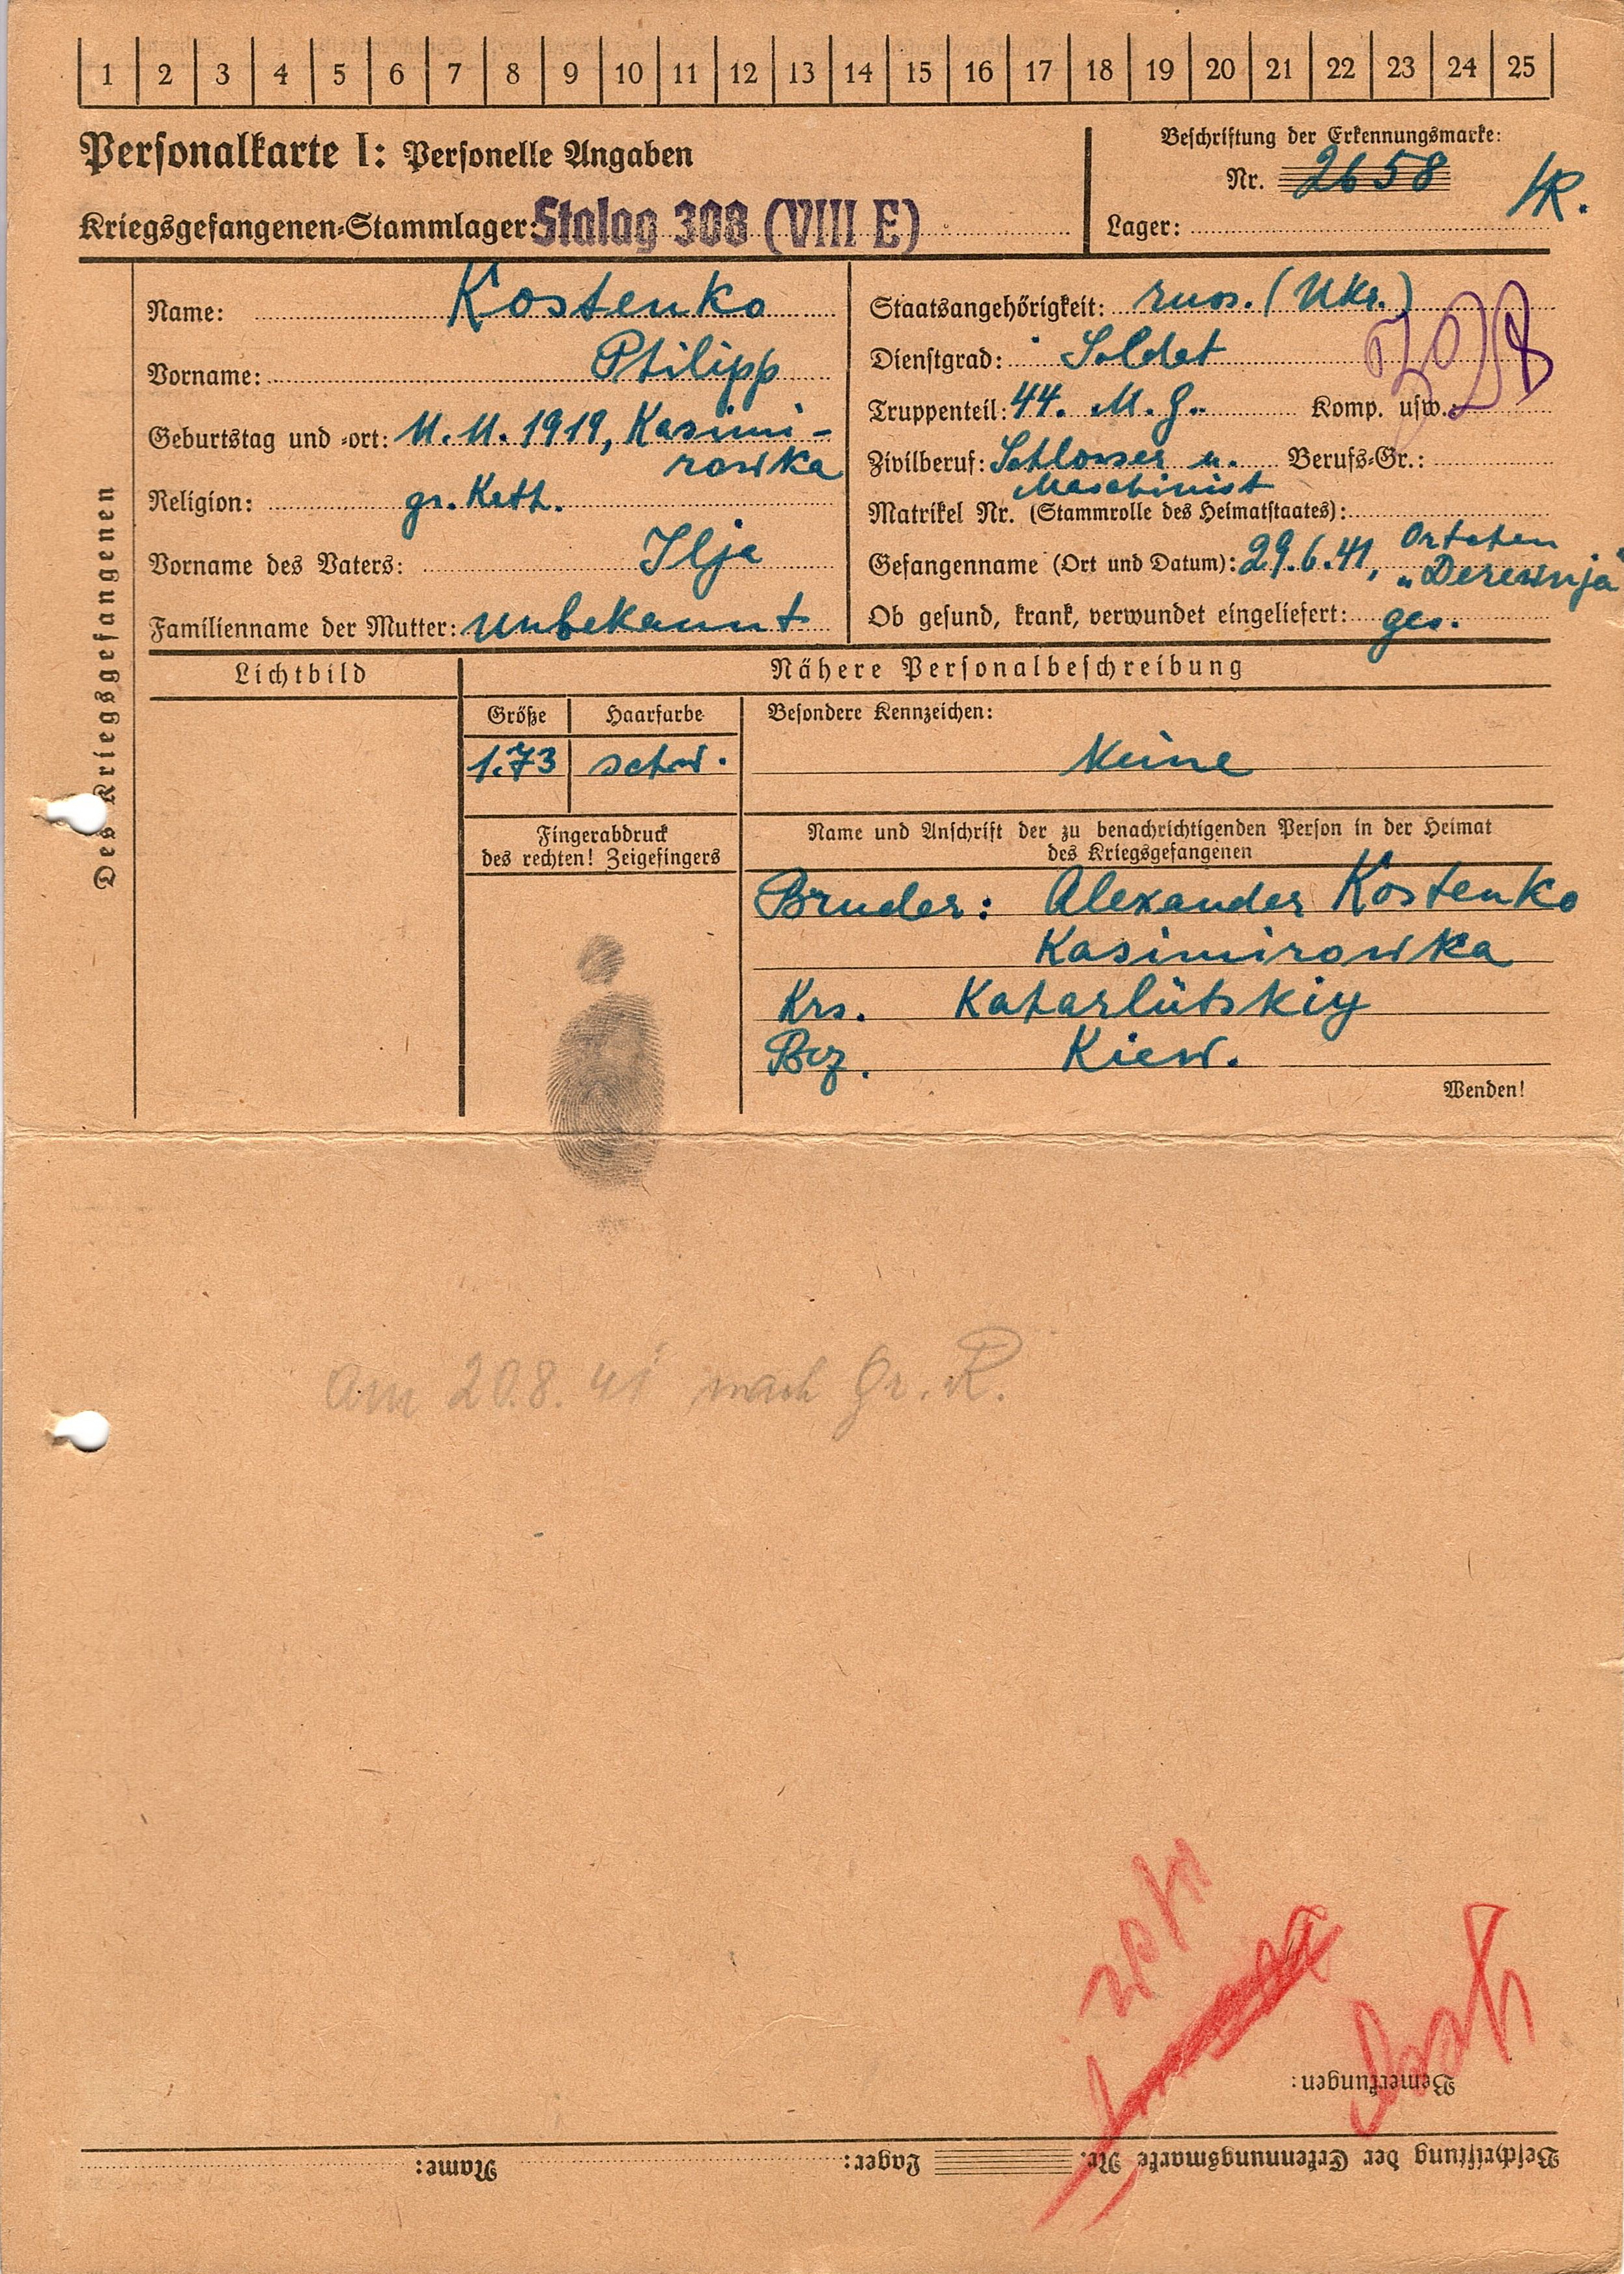 1 2 3 4 5 6 7 8 9 10 11 12 13 14 15 16 17 18 19 20 21 22 23 24 25
Personalkarte I: Personelle Angaben
Kriegsgefangenen-Stammlager: Stalag 308 (VIII E)
Beschriftung der Erkennungsmarke:
Nr. 2658
Lager:
Des Kriegsgefangenen
Name: Kostenko
Vorname: Philipp
Geburtstag und -ort: 11.11.1919, Kasimi-
rowka
Religion: gr. Kath.
Vorname des Vaters: Ilja
Familienname der Mutter: unbekannt
Staatsangehörigkeit: russ. (Ukr.)
Dienstgrad: Soldat
Truppenteil: 44. M. G. Komp. usw.:
Zivilberuf: Schlosser u. Berufs-Gr.:
Maschinist
Matrikel Nr. (Stammrolle des Heimatstaates):
Gefangenname (Ort und Datum): 29.6.41,
"Derewnja"
Ob gesund, krank, verwundet eingeliefert: ges.
Lichtbild
Nähere Personalbeschreibung
Größe Haarfarbe
1.73 schw.
Besondere Kennzeichen:
Keine
Fingerabdruck
des rechten! Zeigefingers
Name und Anschrift der zu benachrichtigenden Person in der Heimat
des Kriegsgefangenen
Bruder: Alexander Kostenko
Kasimirowka
Krs. Katarlütskiy
Bez. Kiew.
Wenden!
Am 20.8.41 nach Gr. R.
Bemerkungen:
Beschriftung der Erkennungsmarke Nr. Lager: Name: